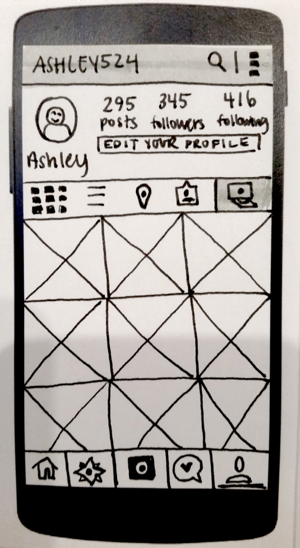 ASHLEY524
295 345 416
posts followers following
EDIT YOUR PROFILE
Ashley